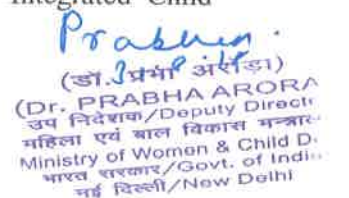 Integrated Child
Prabha
(डॉ. प्रभा अरोड़ा)
(Dr. PRABHA ARORA
उप निदेशक/Deputy Direct
महिला एवं बाल विकास
Ministry of Women & Child D.
भारत सरकार/Govt. of Indi
नई दिल्ली/New Delhi